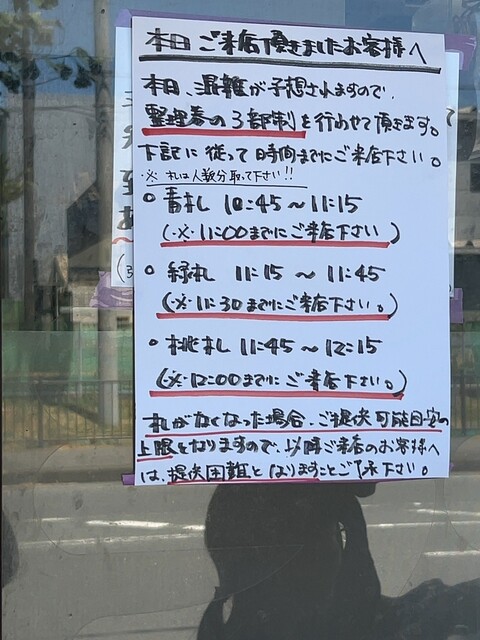 本日ご来店頂きましたお客様へ
本日、混雑が予想されますので、
整理券の3部制を行わせて頂きます。
下記に従って時間までにご来店下さい。
※ 札は人数分取って下さい!!
○ 青札 10:45～11:15
(※11:00までにご来店下さい)
○ 緑札 11:15～11:45
(※11:30までにご来店下さい。)
○ 桃札 11:45～12:15
(※12:00までにご来店下さい。)
札がなくなった場合、ご提供可能目安の
上限となりますので、以降ご来店のお客様へ
は、提供困難となりますことご了承下さい。